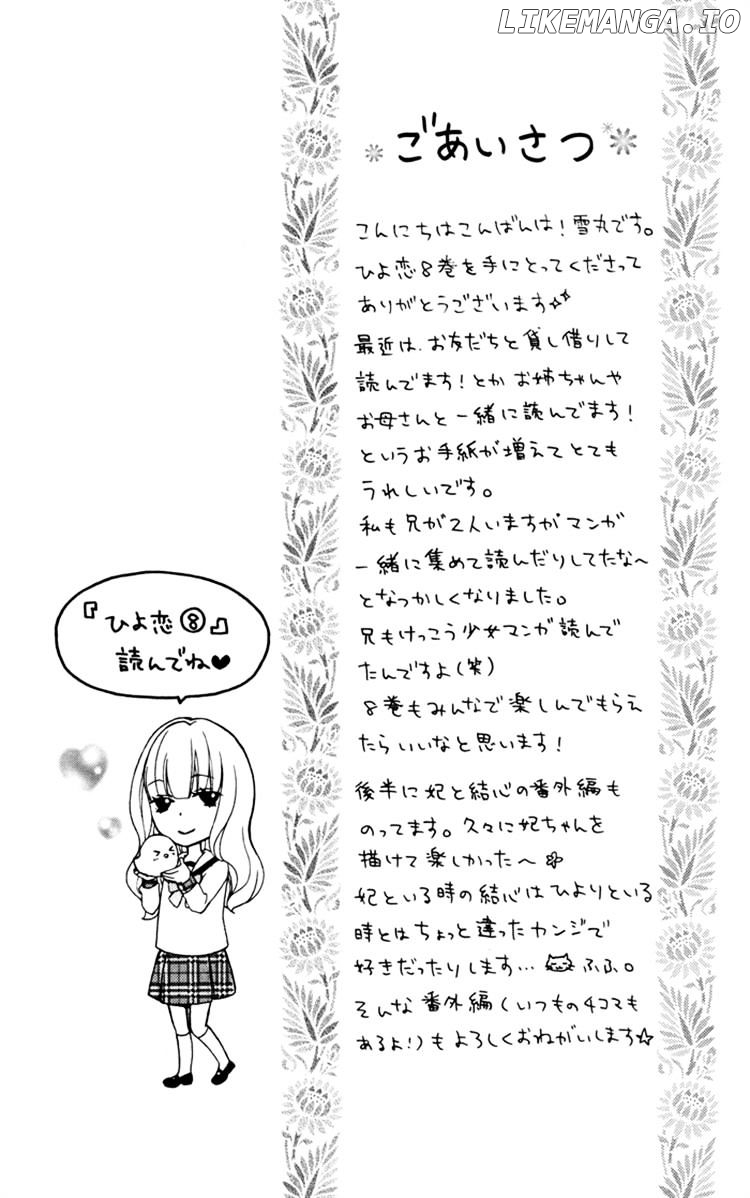 LIKEMANGA.IO
ごあいさつ
こんにちはこんばんは！雪丸です。
ひよ恋8巻を手にとってくださって
ありがとうございます☆
最近は、お友だちと貸し借りして
読んでます！とか お姉ちゃんや
お母さんと一緒に読んでます！
というお手紙が増えてとても
うれしいです。
私も兄が2人いますがマンガ
一緒に集めて読んだりしてたな〜
となつかしくなりました。
兄もけっこう少女マンガ読んで
たんですよ(笑)
8巻もみんなで楽しんでもらえ
たらいいなと思います！
後半に妃と結心の番外編も
のってます。久々に妃ちゃんを
描けて楽しかった〜
妃といる時の結心はひよりといる
時とはちょっと違ったカンジで
好きだったりします… ふふ。
そんな番外編(いつもの4コマも
あるよ！)もよろしくおねがいします☆
『ひよ恋⑧』
読んでね♥